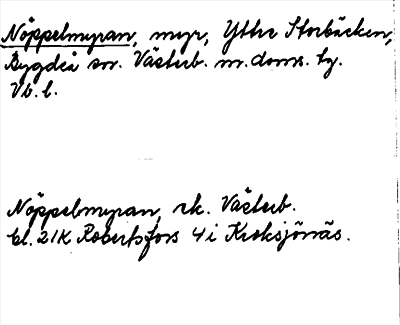 Nöppelmyran, myr, Yttre Storbäcken,
Bygdeå sn. Västerb. n. doms. tg.
Vb. l.
Nöppelmyran, rk. Västerb.
bl. 21K Robertsfors 4 i Kroksjönäs.